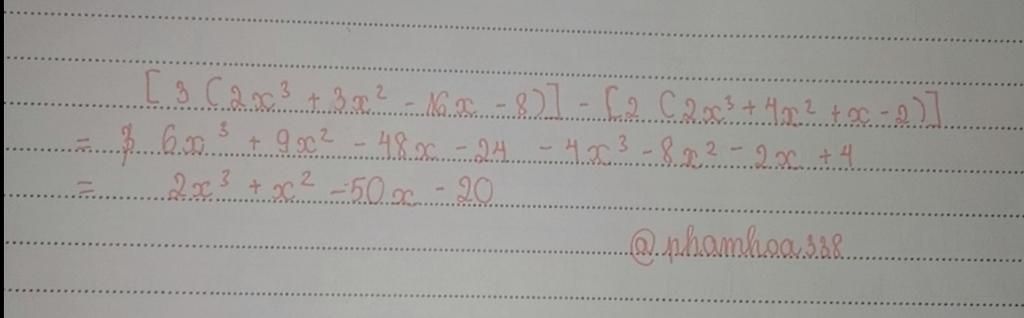 [3(2x³ + 3x² - 16x - 8)] - [2(2x³ + 4x² + x - 2)]
= 6x³ + 9x² - 48x - 24 - 4x³ - 8x² - 2x + 4
= 2x³ + x² - 50x - 20
@phamhoa338